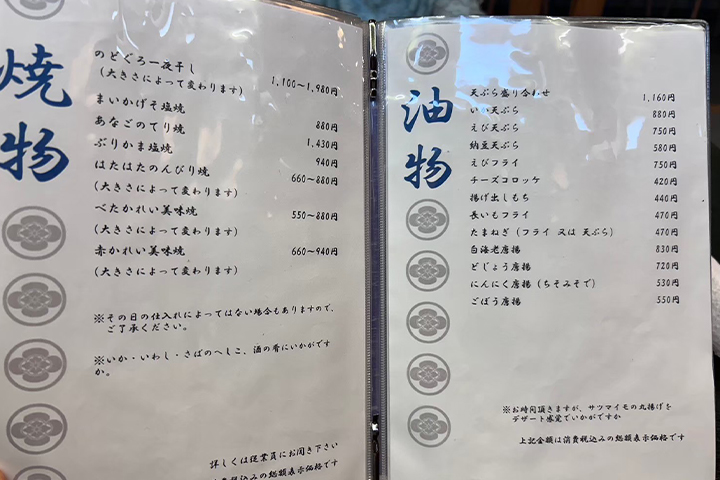 焼物
のどぐろ一夜干し
(大きさによって変わります) 1,100〜1,980円
まいかげそ塩焼 880円
あなごのてり焼 1,430円
ぶりかま塩焼 940円
はたはたのんびり焼 660〜880円
(大きさによって変わります)
べたかれい美味焼 550〜880円
(大きさによって変わります)
赤かれい美味焼 660〜940円
(大きさによって変わります)
※その日の仕入れによってはない場合もありますので、
ご了承ください。
※いか・いわし・さばのへしこ、酒の肴にいかがです
か。
詳しくは従業員にお聞き下さい
税込みの総額表示価格です
油物
天ぷら盛り合わせ 1,160円
いか天ぷら 880円
えび天ぷら 750円
納豆天ぷら 580円
えびフライ 750円
チーズコロッケ 420円
揚げ出しもち 440円
長いもフライ 470円
たまねぎ(フライ 又は 天ぷら) 470円
白海老唐揚 830円
どじょう唐揚 720円
にんにく唐揚(ちそみそで) 530円
ごぼう唐揚 550円
※お時間頂きますが、サツマイモの丸揚げを
デザート感覚でいかがですか
上記金額は消費税込みの総額表示価格です